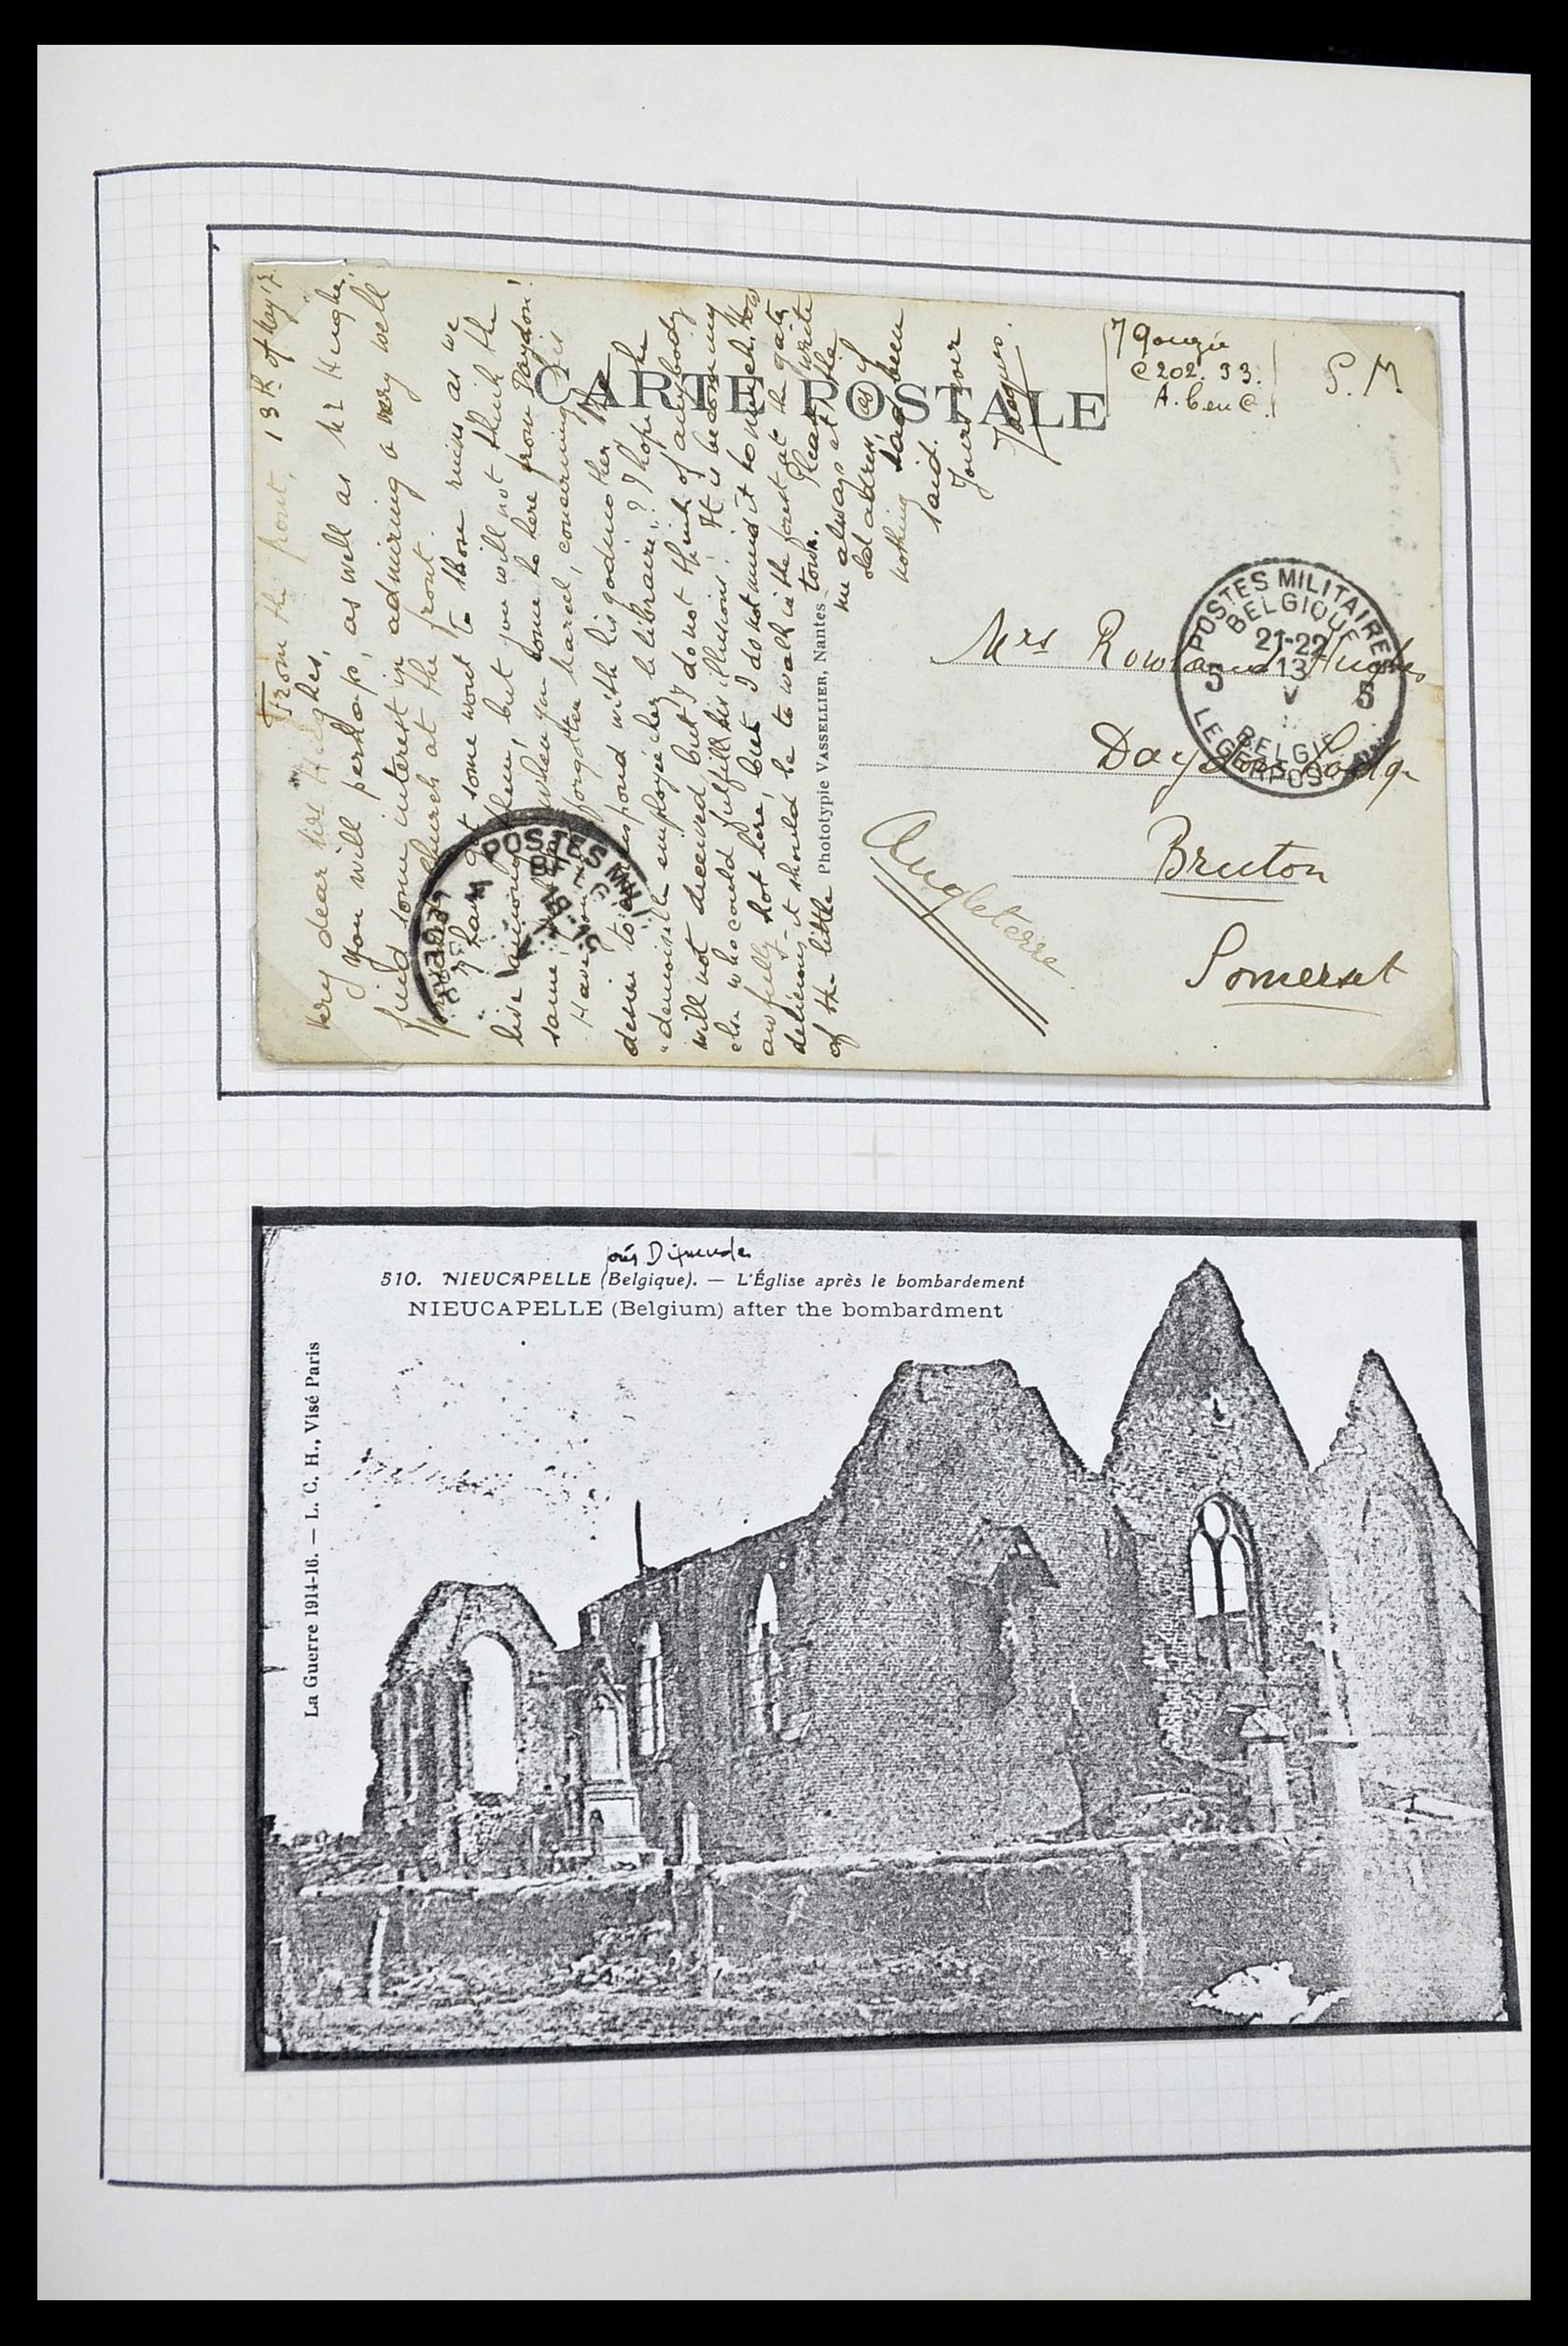 From the front, 13th of May 17.
Very dear Mrs Hughes,
You will perhaps, as well as Mr Hughes,
find some interest in admiring a very well
church at the front.
I have got some wont to those ruins as we
live among them, but you will not think the
same, when you come to here from Daydon!
Have you forgotten Marcel, concerning his
desire to correspond with his godmother, the
"demoiselle employée chez le libraire"? I hope he
will not deceived but I do not think of anybody
else who could fulfill his illusions! It is becoming
awfully hot here, but I do not mind it to much. How
delicious it should be to walk in the forest at the gate
of the little town. Please, write
me always at the
old address, as if
nothing had been
said.
Yours
Jacques.
CARTE POSTALE
Phototypie VASSELLIER, Nantes
J Gouzée
C202. 33.
S. M.
POSTES MILITAIRES
BELGIQUE
21-22
13
V
5 5
BELGIE
LEGERPOST
Mrs Rowland Hughes
Daydon Lodge
Bruton
Somerset
Angleterre
POSTES MILI
LEGERP
près Dixmude
510. NIEUCAPELLE (Belgique). — L'Église après le bombardement
NIEUCAPELLE (Belgium) after the bombardment
La Guerre 1914-16. — L. C. H., Visé Paris